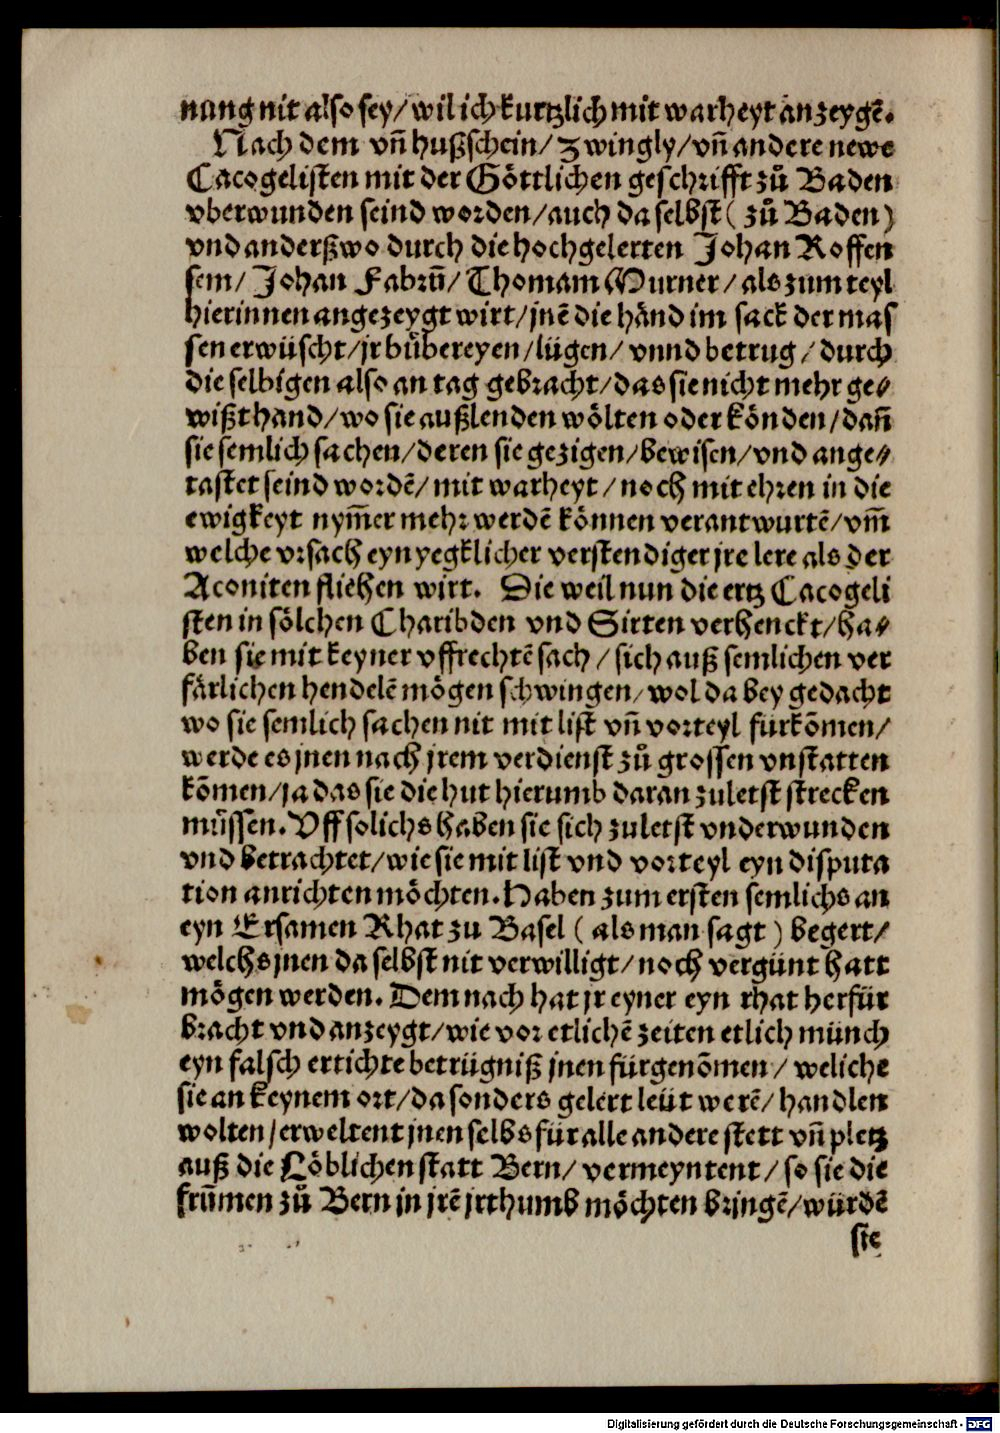 nung nit also sey/ wil ich kurtzlich mit warheyt anzeygē.
Nach dem vñ hußschein/ Zwingly/ vñ andere newe
Cacogelisten mit der Göttlichen geschrifft zů Baden
vberwunden seind worden/ auch da selbst ( zů Baden )
vnd anderßwo durch die hochgelerten Johan Roffen
sem/ Johan Fabrū/ Thomam Murner/ als zum teyl
hierinnen angezeygt wirt/ jnē die händ im sack der mas
sen erwüscht/ jr bůbereyen/ lügen/ vnnd betrug/ durch
die selbigen also an tag gebracht/ das sie nicht mehr ge⸗
wißt hand/ wo sie außlenden wölten oder könden/ dañ
sie semlich sachen/ deren sie gezigen/ bewisen/ vnd ange⸗
tastet seind wordē/ mit warheyt/ noch mit ehren in die
ewigkeyt nym̄er mehr werdē können verantwurtē/ vm̄
welche vrsach eyn yegklicher verstendiger jre lere als der
Aconiten fliehen wirt. Die weil nun die ertz Cacogeli
sten in sölchen Charibden vnd Sirten verhenckt/ ha⸗
ben sie mit keyner vffrechtē sach/ sich auß semlichen ver
färlichen hendelē mögen schwingen/ wol da bey gedacht
wo sie semlich sachen nit mit list vñ vorteyl fürkōmen/
werde es jnen nach jrem verdienst zů grossen vnstatten
kōmen/ ja das sie die hut hierumb daran zuletst strecken
müssen. Vff solichs haben sie sich zuletst vnderwunden
vnd betrachtet/ wie sie mit list vnd vorteyl eyn disputa
tion anrichten möchten. Haben zum ersten semlichs an
eyn Ersamen Rhat zu Basel ( als man sagt ) begert/
welchs jnen da selbst nit verwilligt/ noch vergünt hatt
mögen werden. Demnach hat jr eyner eyn rhat herfür
bracht vnd anzeygt/ wie vor etlichē zeiten etlich münch
eyn falsch ertichte betrügniß jnen fürgenōmen/ weliche
sie an keynem ort/ da sonders gelert leüt werē/ handlen
wolten/ erweltent jnen selbs für alle andere stett vñ pletz
auß die Löblichen statt Bern/ vermeyntent/ so sie die
frūmen zů Bern in jrē jrthumb möchten bringē/ würdē
sie
Digitalisierung gefördert durch die Deutsche Forschungsgemeinschaft - DFG